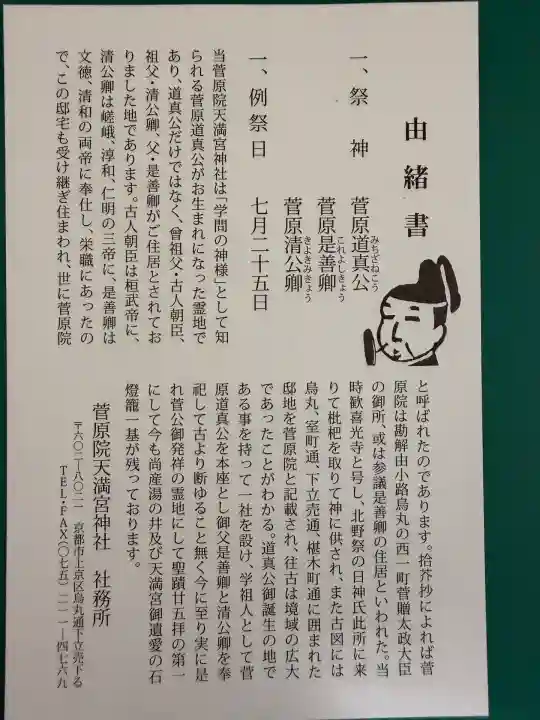 由緒書
一、祭　神　菅原道真公
みちざねこう
菅原是善卿
これよしきょう
菅原清公卿
きよきみきょう
一、例祭日　七月二十五日
当菅原院天満宮神社は「学問の神様」として知
られる菅原道真公がお生まれになった霊地で
あり、道真公だけではなく、曾祖父・古人朝臣、
祖父・清公卿、父・是善卿がご住居とされてお
りました地であります。古人朝臣は桓武帝に、
清公卿は嵯峨、淳和、仁明の三帝に、是善卿は
文徳、清和の両帝に奉仕し、栄職にあったの
で、この邸宅も受け継ぎ住まわれ、世に菅原院
と呼ばれたのであります。拾芥抄によれば菅
原院は勘解由小路烏丸の西一町菅贈太政大臣
の御所、或は参議是善卿の住居といわれた。当
時歓喜光寺と号し、北野祭の日神氏此所に来
りて枇杷を取りて神に供され、また古図には
烏丸、室町通、下立売通、椹木町通に囲まれた
邸地を菅原院と記載され、往古は境域の広大
であったことがわかる。道真公御誕生の地で
ある事を持って一社を設け、学祖人として菅
原道真公を本座とし御父是善卿と清公卿を奉
祀して古より断ゆること無く今に至り実に是
れ菅公御発祥の霊地にして聖蹟廿五拝の第一
にして今も尚産湯の井及び天満宮御遺愛の石
燈籠一基が残っております。
菅原院天満宮神社　社務所
〒六〇二－八〇二一　京都市上京区烏丸通下立売下る
TEL・FAX（〇七五）二一一－四七六九